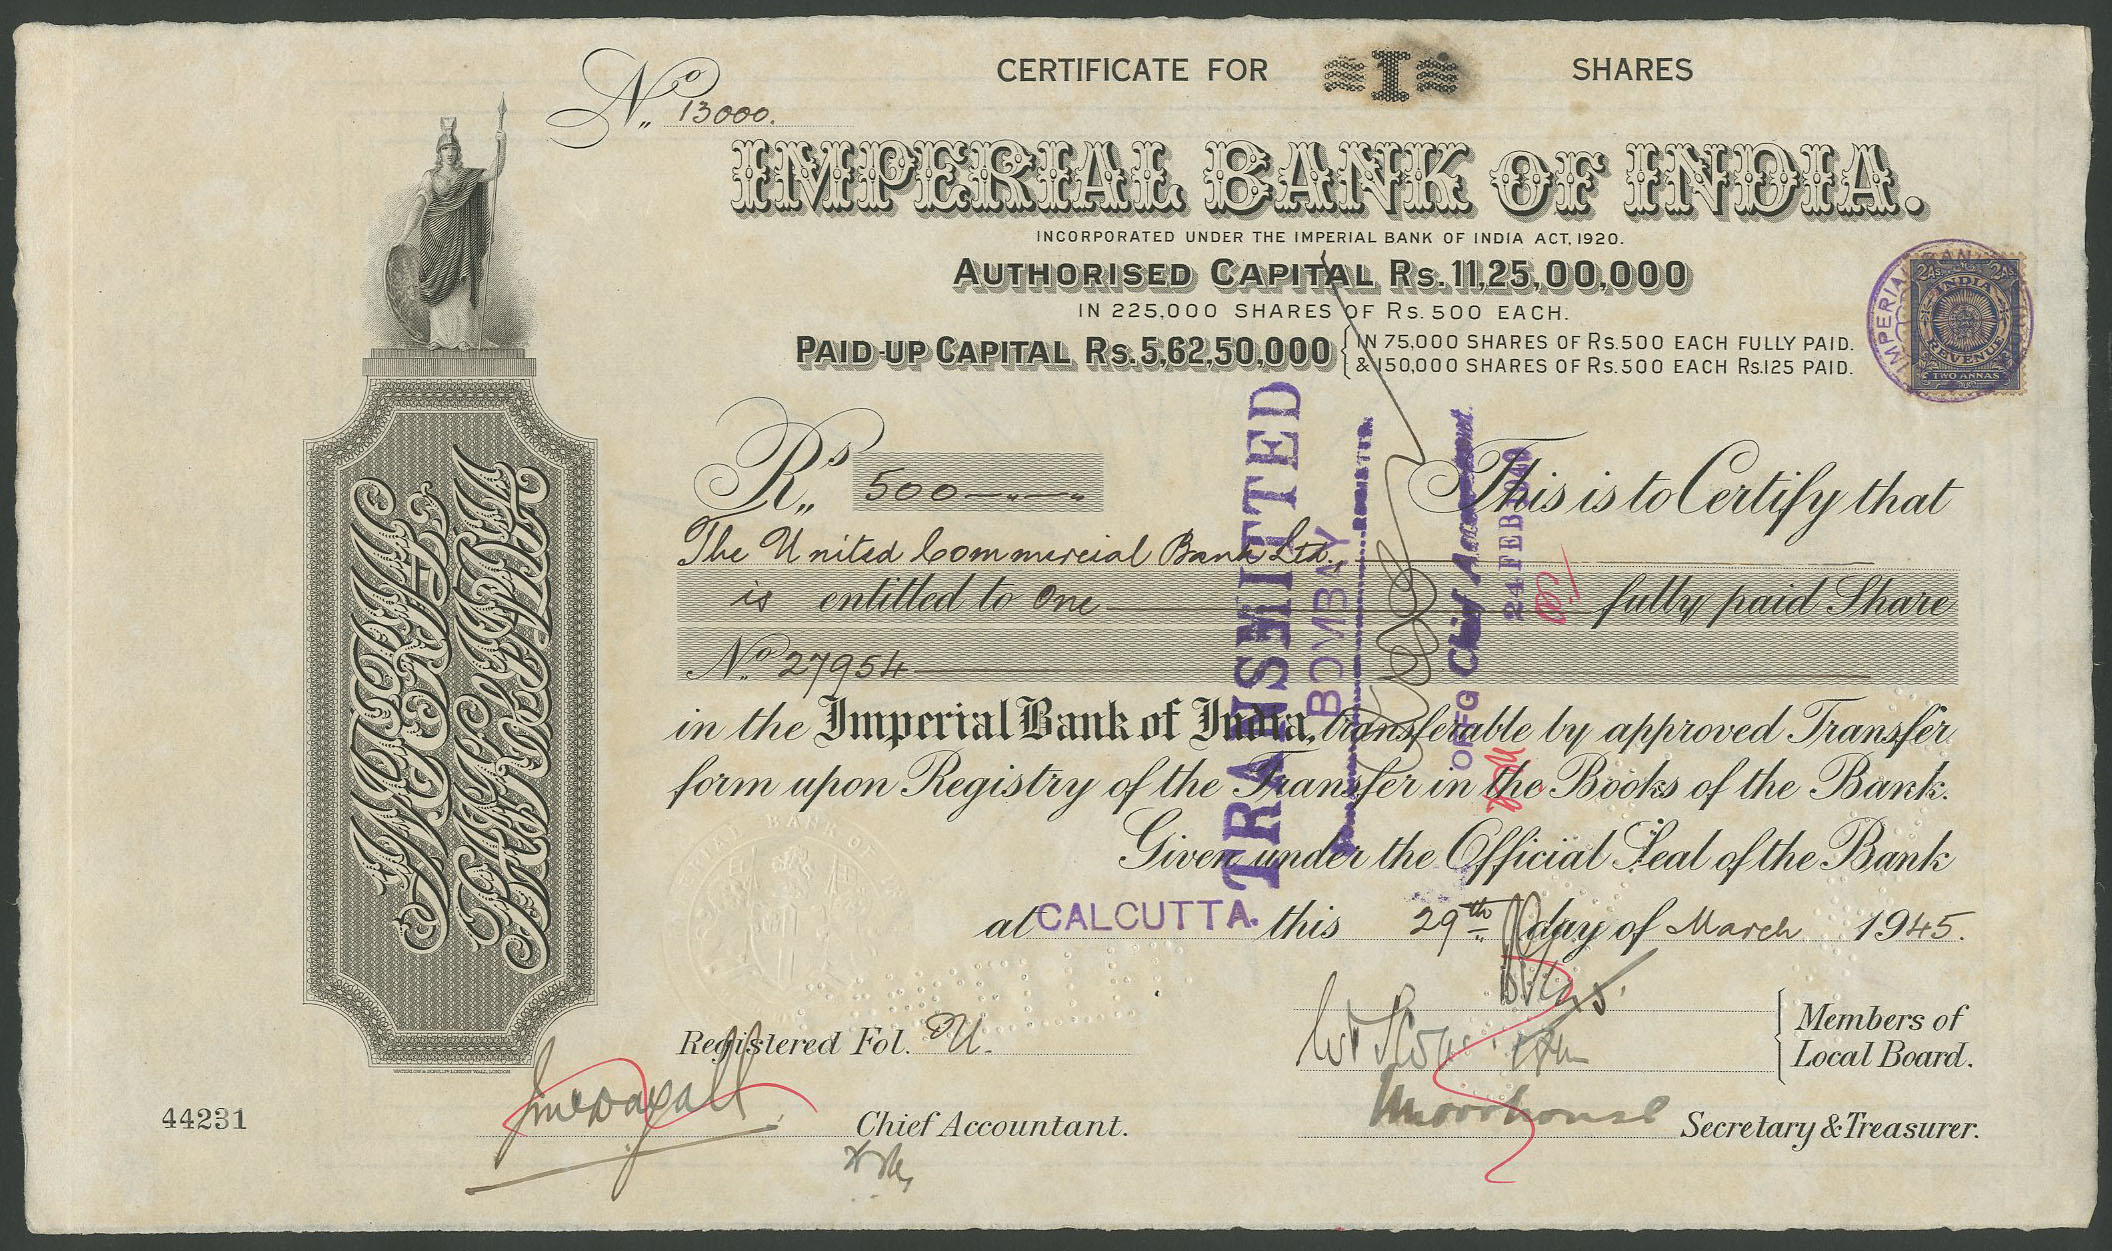 CERTIFICATE FOR I SHARES
No. 13000.
IMPERIAL BANK OF INDIA.
INCORPORATED UNDER THE IMPERIAL BANK OF INDIA ACT, 1920.
AUTHORISED CAPITAL Rs. 11,25,00,000
IN 225,000 SHARES OF Rs. 500 EACH.
PAID-UP CAPITAL Rs. 5,62,50,000 { IN 75,000 SHARES OF Rs. 500 EACH FULLY PAID.
& 150,000 SHARES OF Rs. 500 EACH Rs. 125 PAID.
2 As. 2 As.
INDIA
REVENUE
TWO ANNAS
IMPERIAL BANK
Rs. 500
This is to Certify that
The United Commercial Bank Ltd.,
is entitled to One fully paid Share
No. 27954
in the Imperial Bank of India, transferable by approved Transfer
form upon Registry of the Transfer in the Books of the Bank.
Given under the Official Seal of the Bank
at CALCUTTA. this 29th day of March 1945.
TRANSMITTED
BOMBAY
OFFG Chief Accountant.
24 FEB 1949
IMPERIAL BANK OF INDIA
Registered Fol. U.
Members of
Local Board.
Chief Accountant.
Secretary & Treasurer.
IMPERIAL
BANK OF INDIA
WATERLOW & SONS, LTD LONDON WALL, LONDON
44231